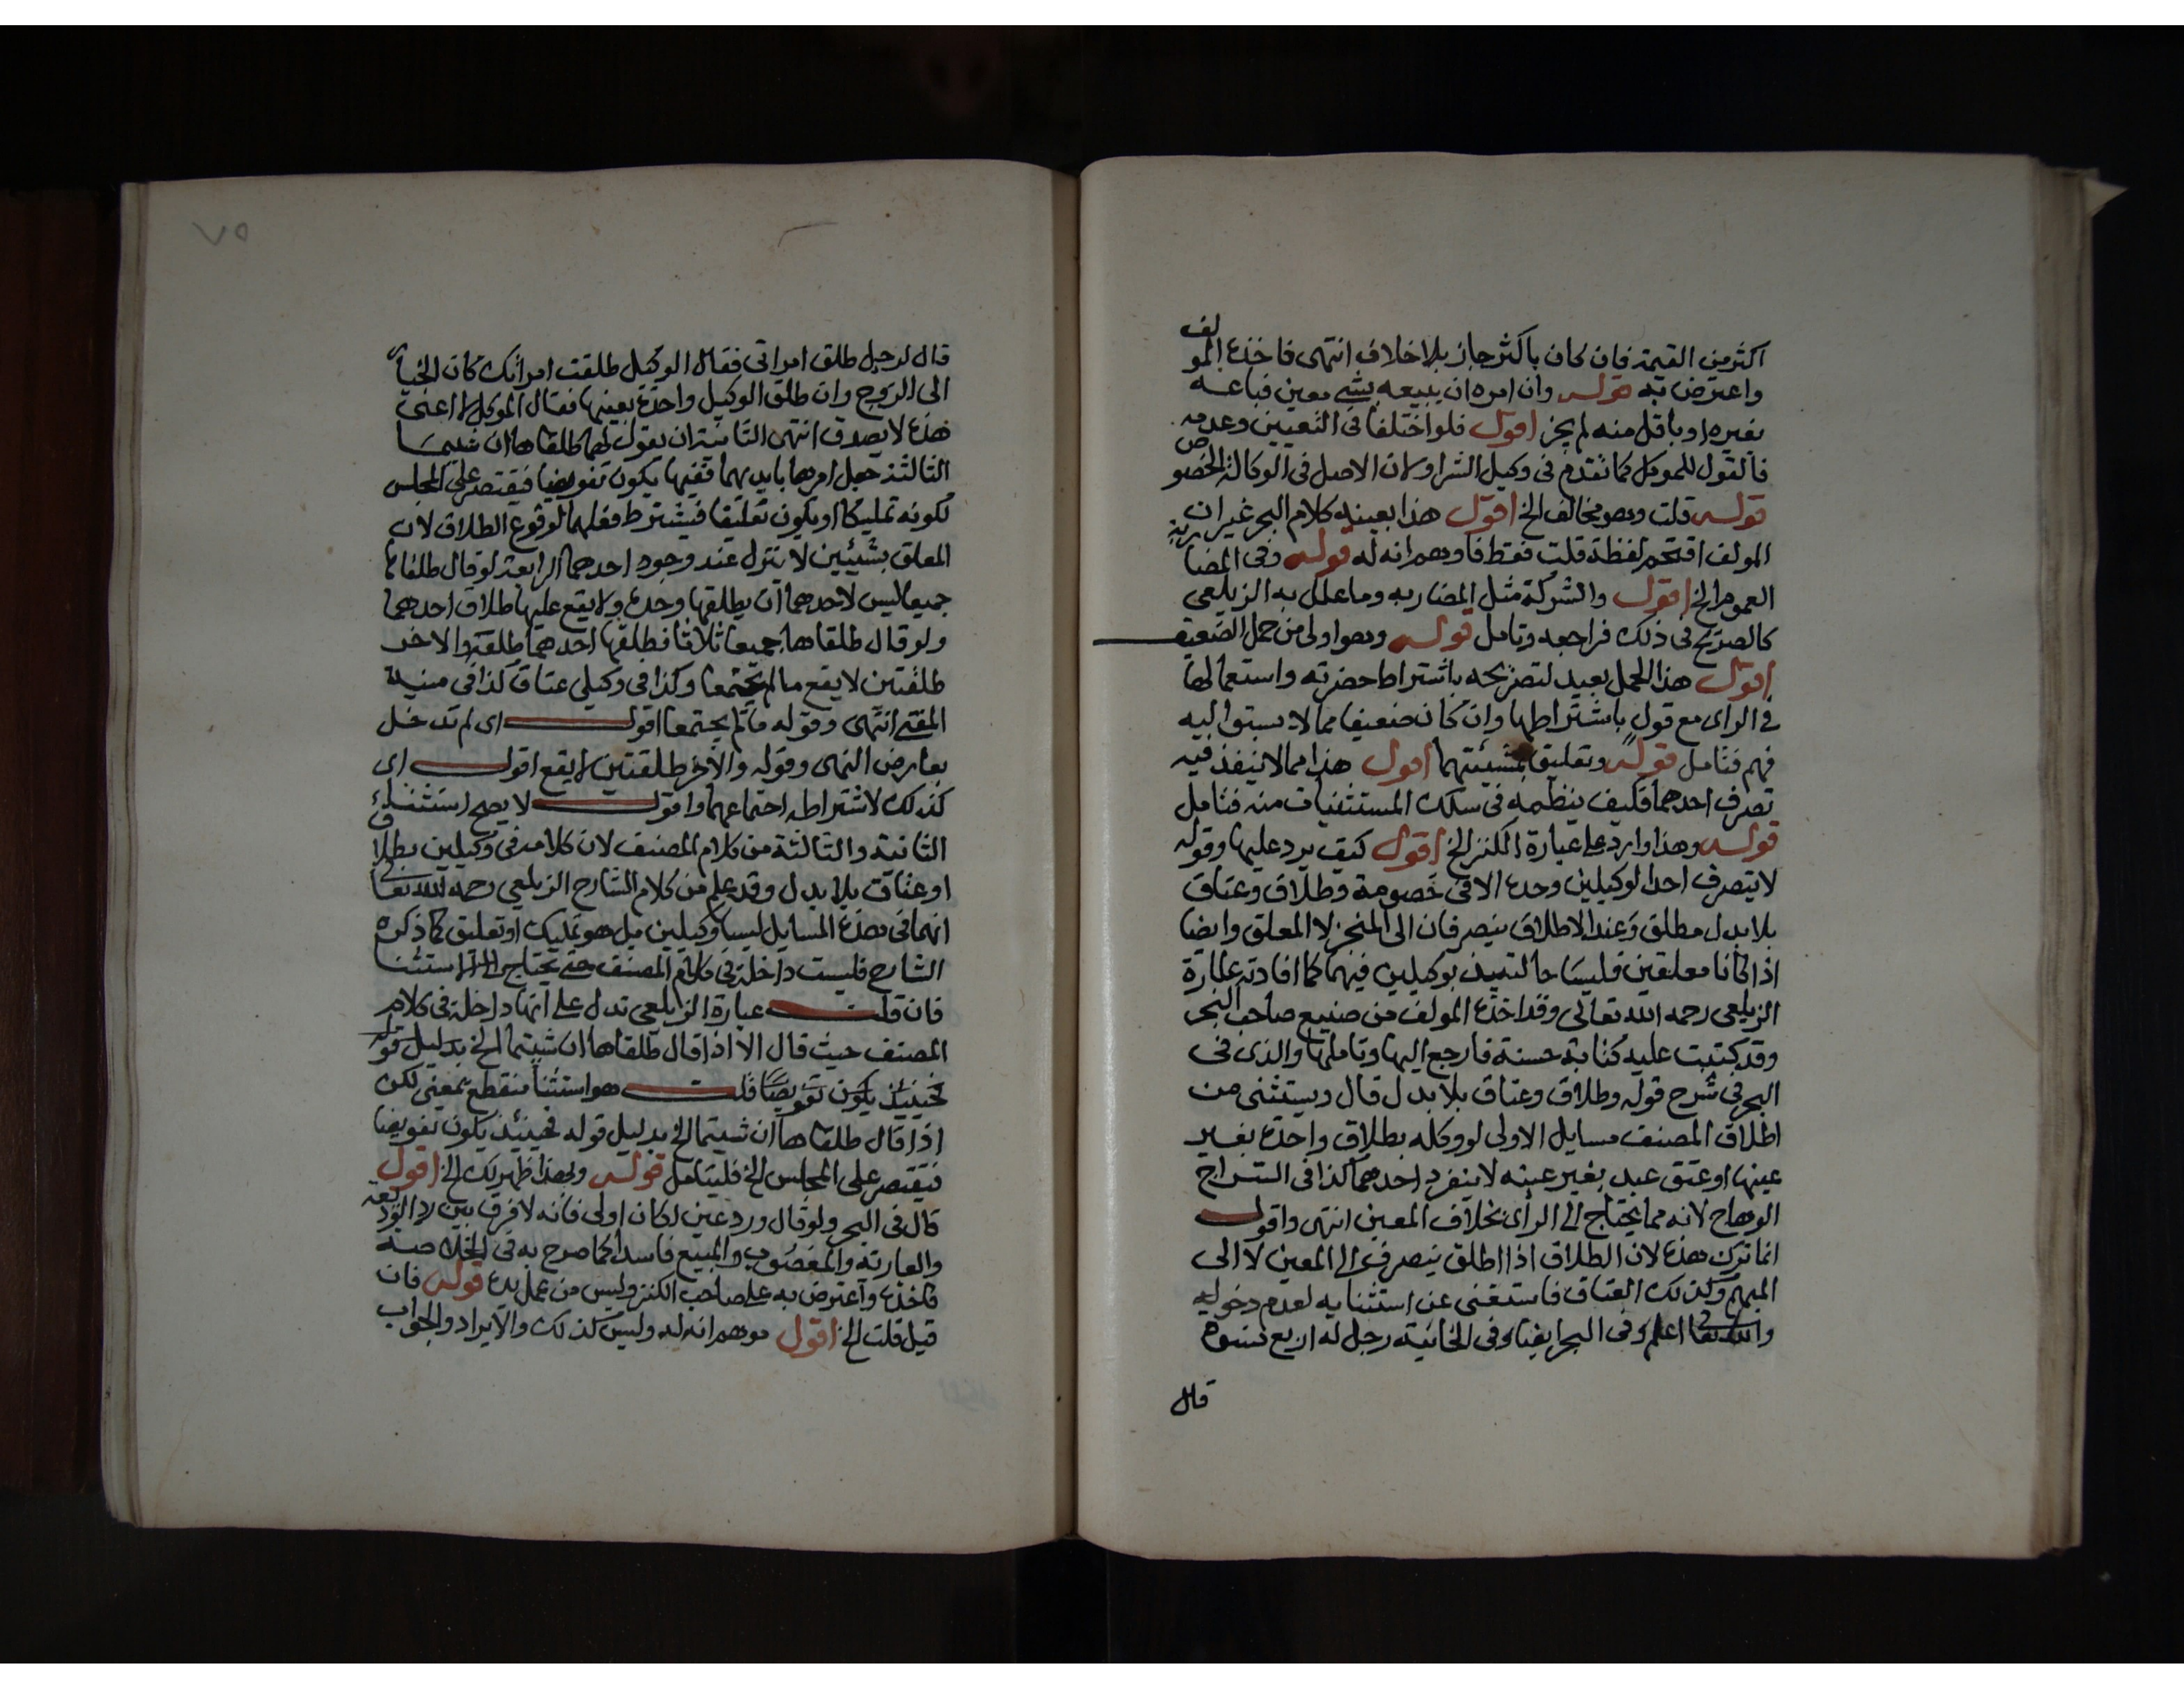 اكثر من القيمة فان كان باكثر جاز بلا خلاف انتهى فاخذه المولف
واعترض به قوله وان امره ان يبيعه بشي معين فباعه
بغيره او باقل منه لم يجز اقول فلو اختلفا في التعيين وعدمه
فالقول للموكل كما تقدم في وكيل الشرا ولان الاصل في الوكالة الخصوص
قوله قلت وهو مخالف الخ اقول هذا بعينه كلام البحر غير ان
المولف اقتحم لفظة قلت فقط فاوهم انه له قوله وفي المضاربة
العموم الخ اقول والشركة مثل المضاربه وما علل به الزيلعي
كالصريح في ذلك فراجعه وتامل قوله وهو اولى من حمل الضعيف
اقول هذا الحمل بعيد لتصريحه باشتراط حضرته واستعمالها
في الراى مع قول باشتراطها وان كان ضعيفا مما لا يستوا ليه
فهم فتامل قوله وتعليق بمشيئتهما اقول هذا مما لا ينفذ فيه
تصرف احدهما فكيف ينظمه في سلك المستثنيات منه فتامل
قوله وهذا وارد على عبارة الكنز الخ اقول كيف يرد عليها وقوله
لا يتصرف احد الوكيلين وحده الا في خصومة وطلاق وعتاق
بلا بدل مطلق وعند الاطلاق ينصرفان الى المنجز لا المعلق وايضا
اذا كانا معلقين فليسا حالتيذ بوكيلين فيهما كما افادته عبارة
الزيلعي رحمه الله تعالى وقد اخذه المولف من صنيع صاحب البحر
وقد كتبت عليه كتابة حسنة فارجع اليها وتاملها والذى في
البحر في شرح قوله وطلاق وعتاق بلا بدل قال ويستثنى من
اطلاق المصنف مسايل الاولى لو وكله بطلاق واحدة بغير
عينها او عتق عبد بغير عينه لا ينفرد احدهما كذا في السراج
الوهاج لانه مما يحتاج الى الرأى بخلاف المعين انتهى واقول
انما ترك هذه لان الطلاق اذا اطلق ينصرف الى المعين لا الى
المبهم وكذلك العتاق فاستغنى عن استثنايه لعدم دخوله
والله تعالى اعلم وفي البحر ايضا وفي الخانية رجل له اربع نسوة
قال
٧٥
قال لرجل طلق امراتي فقال الوكيل طلقت امراتك كان الخيار
الى الزوج وان طلق الوكيل واحدة بعينها فقال الموكل لم اعنى
هذه لا يصدق انتهى الثانية ان يقول لهما طلقاها ان شيتما
الثالثة جعل امرها بايديهما ففيها يكون تفويضا فيقتصر على المجلس
لكونه تمليكا او يكون تعليقا فيشترط فعلهما لوقوع الطلاق لان
المعلق بشيئين لا ينزل عند وجود احدهما الرابعة لو قال طلقاها
جميعا ليس لاحدهما ان يطلقها وحده ولا يقع عليها طلاق احدهما
ولو قال طلقاها جميعا ثلاثا فطلقها احدهما طلقة والاخر
طلقتين لا يقع مالم يجتمعا وكذا في وكيلي عتاق كذا في منية
المفتي انتهى وقوله ما لم يجتمعا اقول اى لم تدخل
بعارض النهى وقوله والاخر طلقتين لا يقع اقول اى
كذلك لاشتراطه اجتماعهما واقول لا يصح استثناء
الثانية والثالثة من كلام المصنف لان كلامه في وكيلين بطلاق
او عتاق بلا بدل وقد علم من كلام الشارح الزيلعي رحمه الله تعالى
انهما في هذه المسايل ليسا وكيلين بل هو تمليك او تعليق كما ذكره
الشارح فليست داخلة في كلام المصنف حتى يحتاج الى الاستثنا
فان قلت عبارة الزيلعي تدل على انها داخلة في كلام
المصنف حيث قال الا اذا قال طلقاها ان شيتما الخ بدليل قوله
فحينيذ يكون تفويضا قلت هو استثنا منقطع بمعنى لكن
اذا قال طلقاها ان شيتما الخ بدليل قوله فحينئذ يكون تفويضا
فيقتصر على المجلس الخ فليتامل قوله وبهذا ظهر لك الخ اقول
قال في البحر ولو قال ورد عين لكان اولى فانه لا فرق بين رد الوديعة
والعارية والمغصوب والمبيع فاسدا كما صرح به في الخلاصة
فاخذه واعترض به على صاحب الكنز وليس من عمل يده قوله فان
قيل قلت الخ اقول موهم انه له وليس كذلك والايراد والجواب